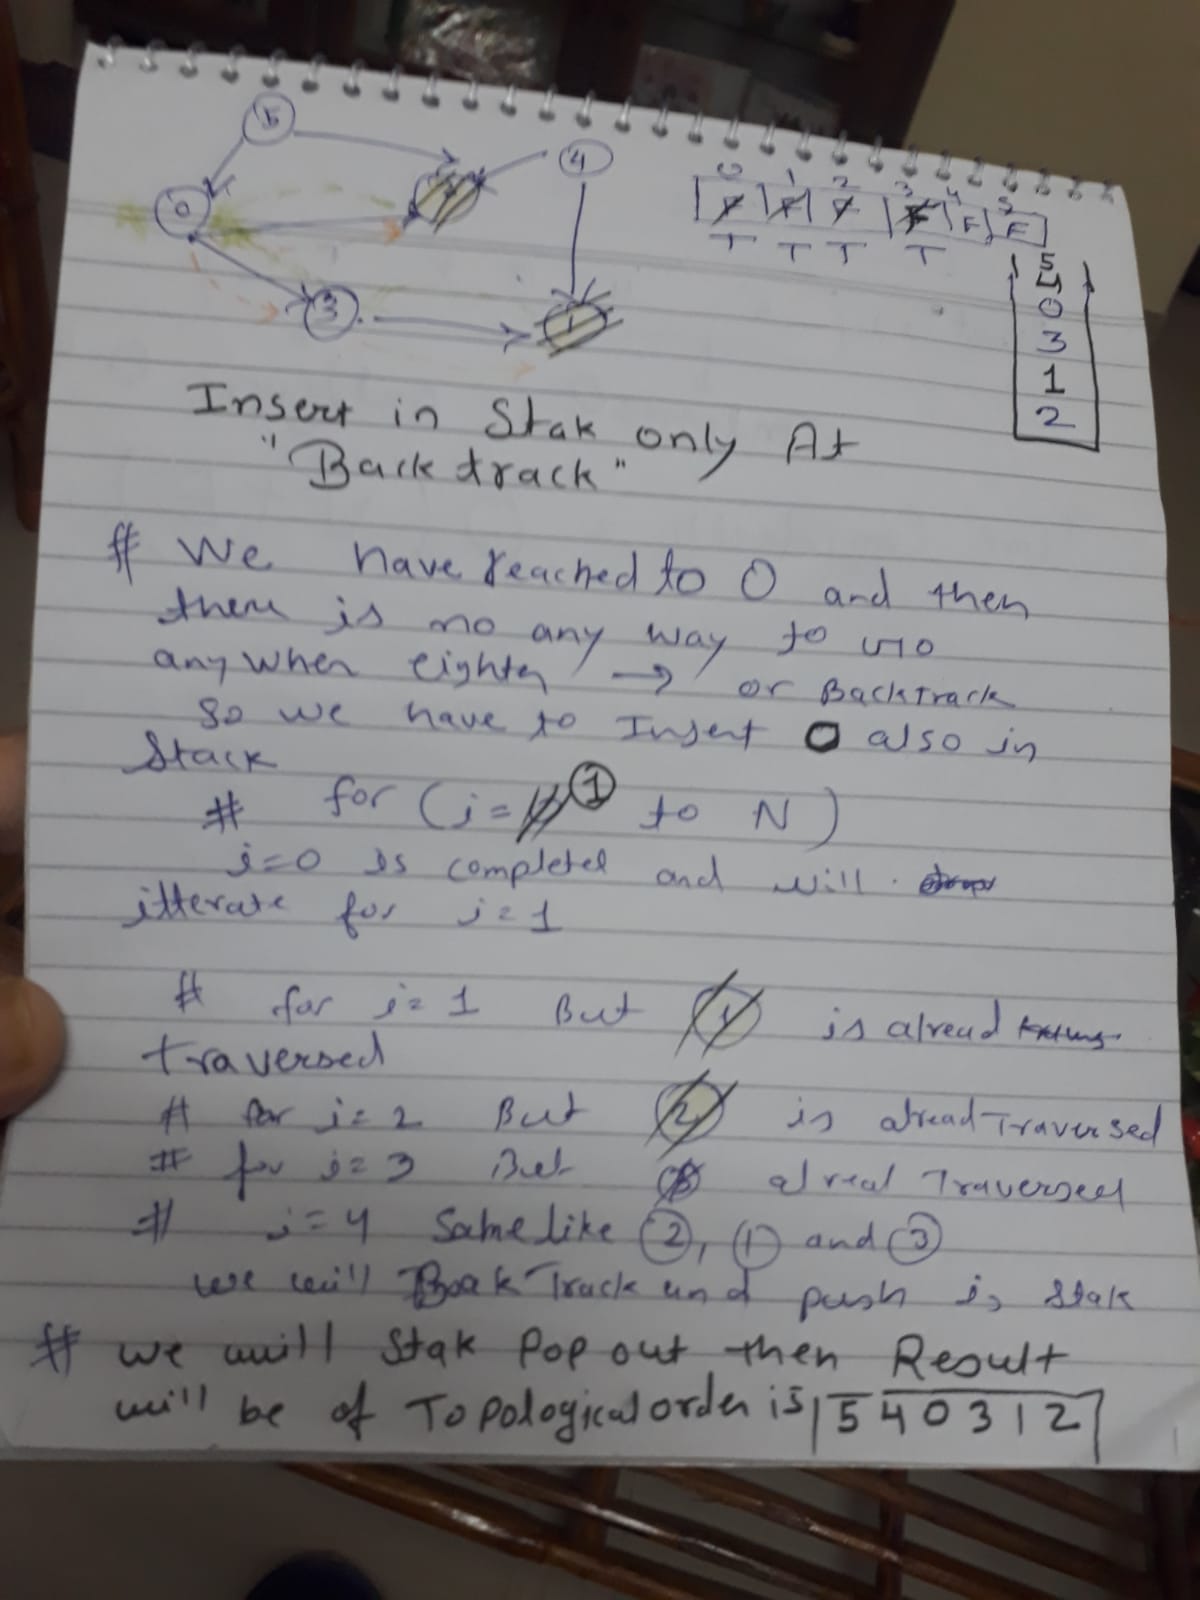 5
4
0
2
3
1
0 1 2 3 4 5
F F F F F F
T T T T
5
4
0
3
1
2
Insert in Stak only At
"Backtrack"
# We have reached to 0 and then
there is no any way to go
any when eighter → or BackTrack
so we have to Insert 0 also in
Stack
# for (i = 1 to N)
i=0 is completed and will
itterate for i=1
# for i=1 But 1 is alread
traversed
# for i=2 But 2 is alread Traversed
# for i=3 But 3 alread Traversed
# i=4 Same like 2, 1 and 3
we will BackTrack and push is Stak
# we will Stak Pop out then Result
will be of Topological order is 5 4 0 3 1 2